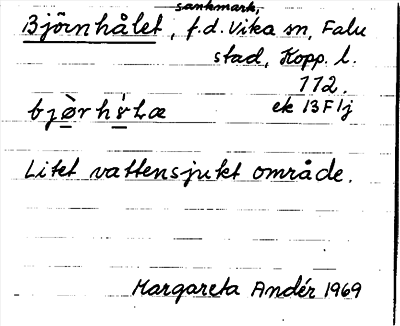 sankmark,
Björnhålet, f.d. Vika sn, Falu
stad, Kopp. l.
112.
ek 13F1j
Litet vattensjukt område.
Margareta Andér 1969